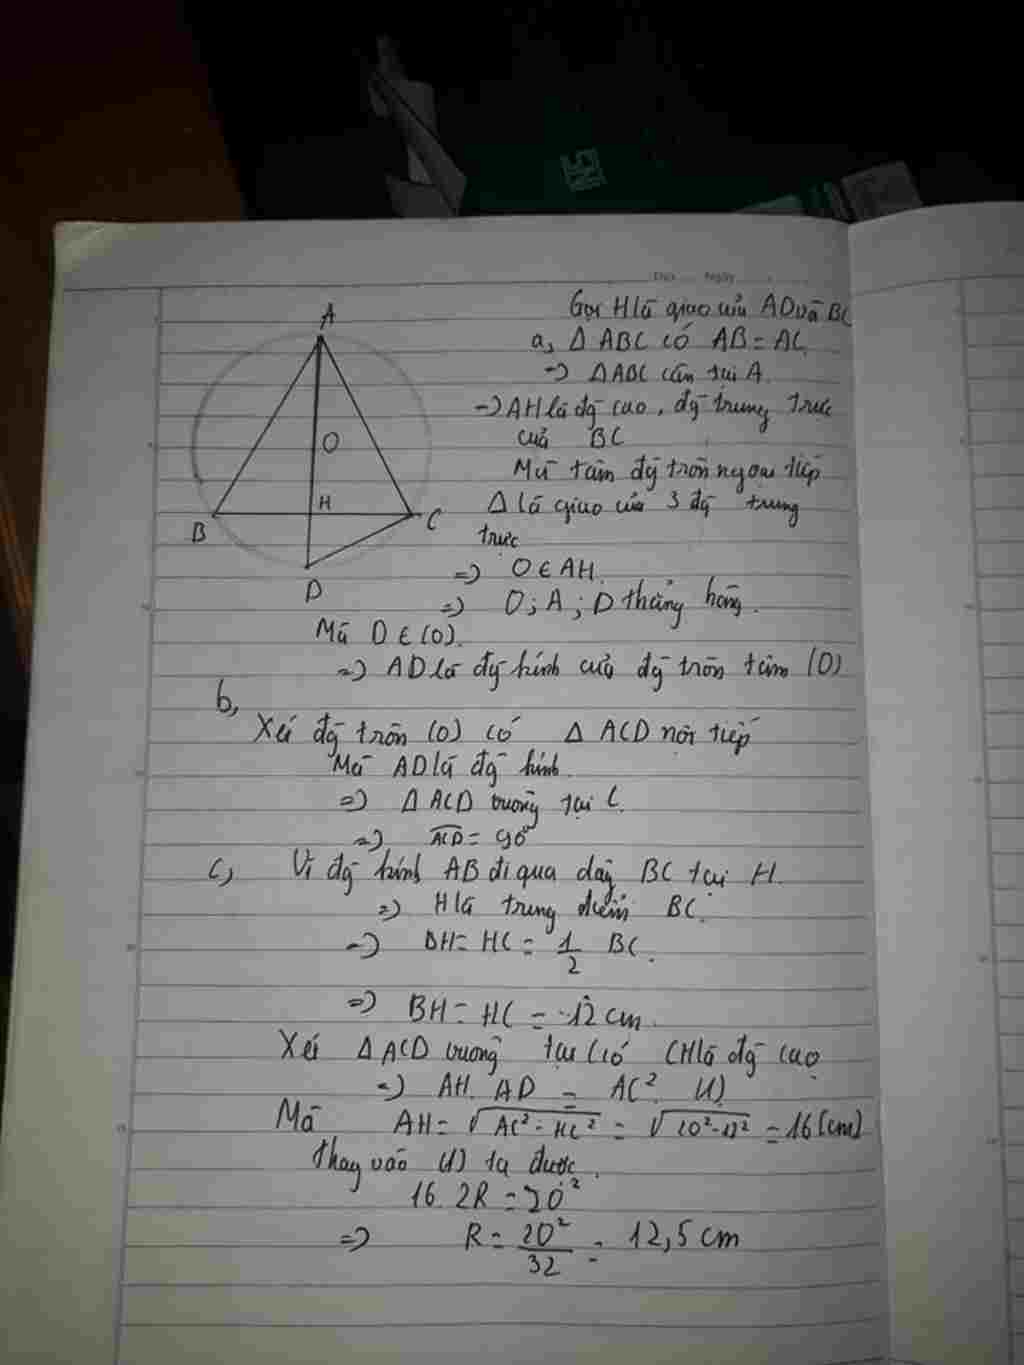 Thứ Ngày
Gọi H là giao của AD và BC
a, Δ ABC có AB = AC
=> Δ ABC cân tại A.
=> AH là đg cao, đg trung trực
của BC
Mà tâm đg tròn ngoại tiếp
Δ là giao của 3 đg trung
trực
=> O ∈ AH.
=> O; A; D thẳng hàng.
Mà D ∈ (O).
=> AD là đg kính của đg tròn tâm (O)
b,
Xét đg tròn (O) có Δ ACD nội tiếp
Mà AD là đg kính
=> Δ ACD vuông tại C.
=> ACD = 90°
c, Vì đg kính AB đi qua dây BC tại H.
=> H là trung điểm BC.
=> BH = HC = 1/2 BC.
=> BH = HC = 12 cm.
Xét Δ ACD vuông tại C có CH là đg cao
=> AH. AD = AC² (1)
Mà AH = √AC² - HC² = √20² - 12² = 16 (cm)
Thay vào (1) ta được.
16. 2R = 20²
=> R = 20²/32 = 12,5 cm
A
O
H
B
C
D